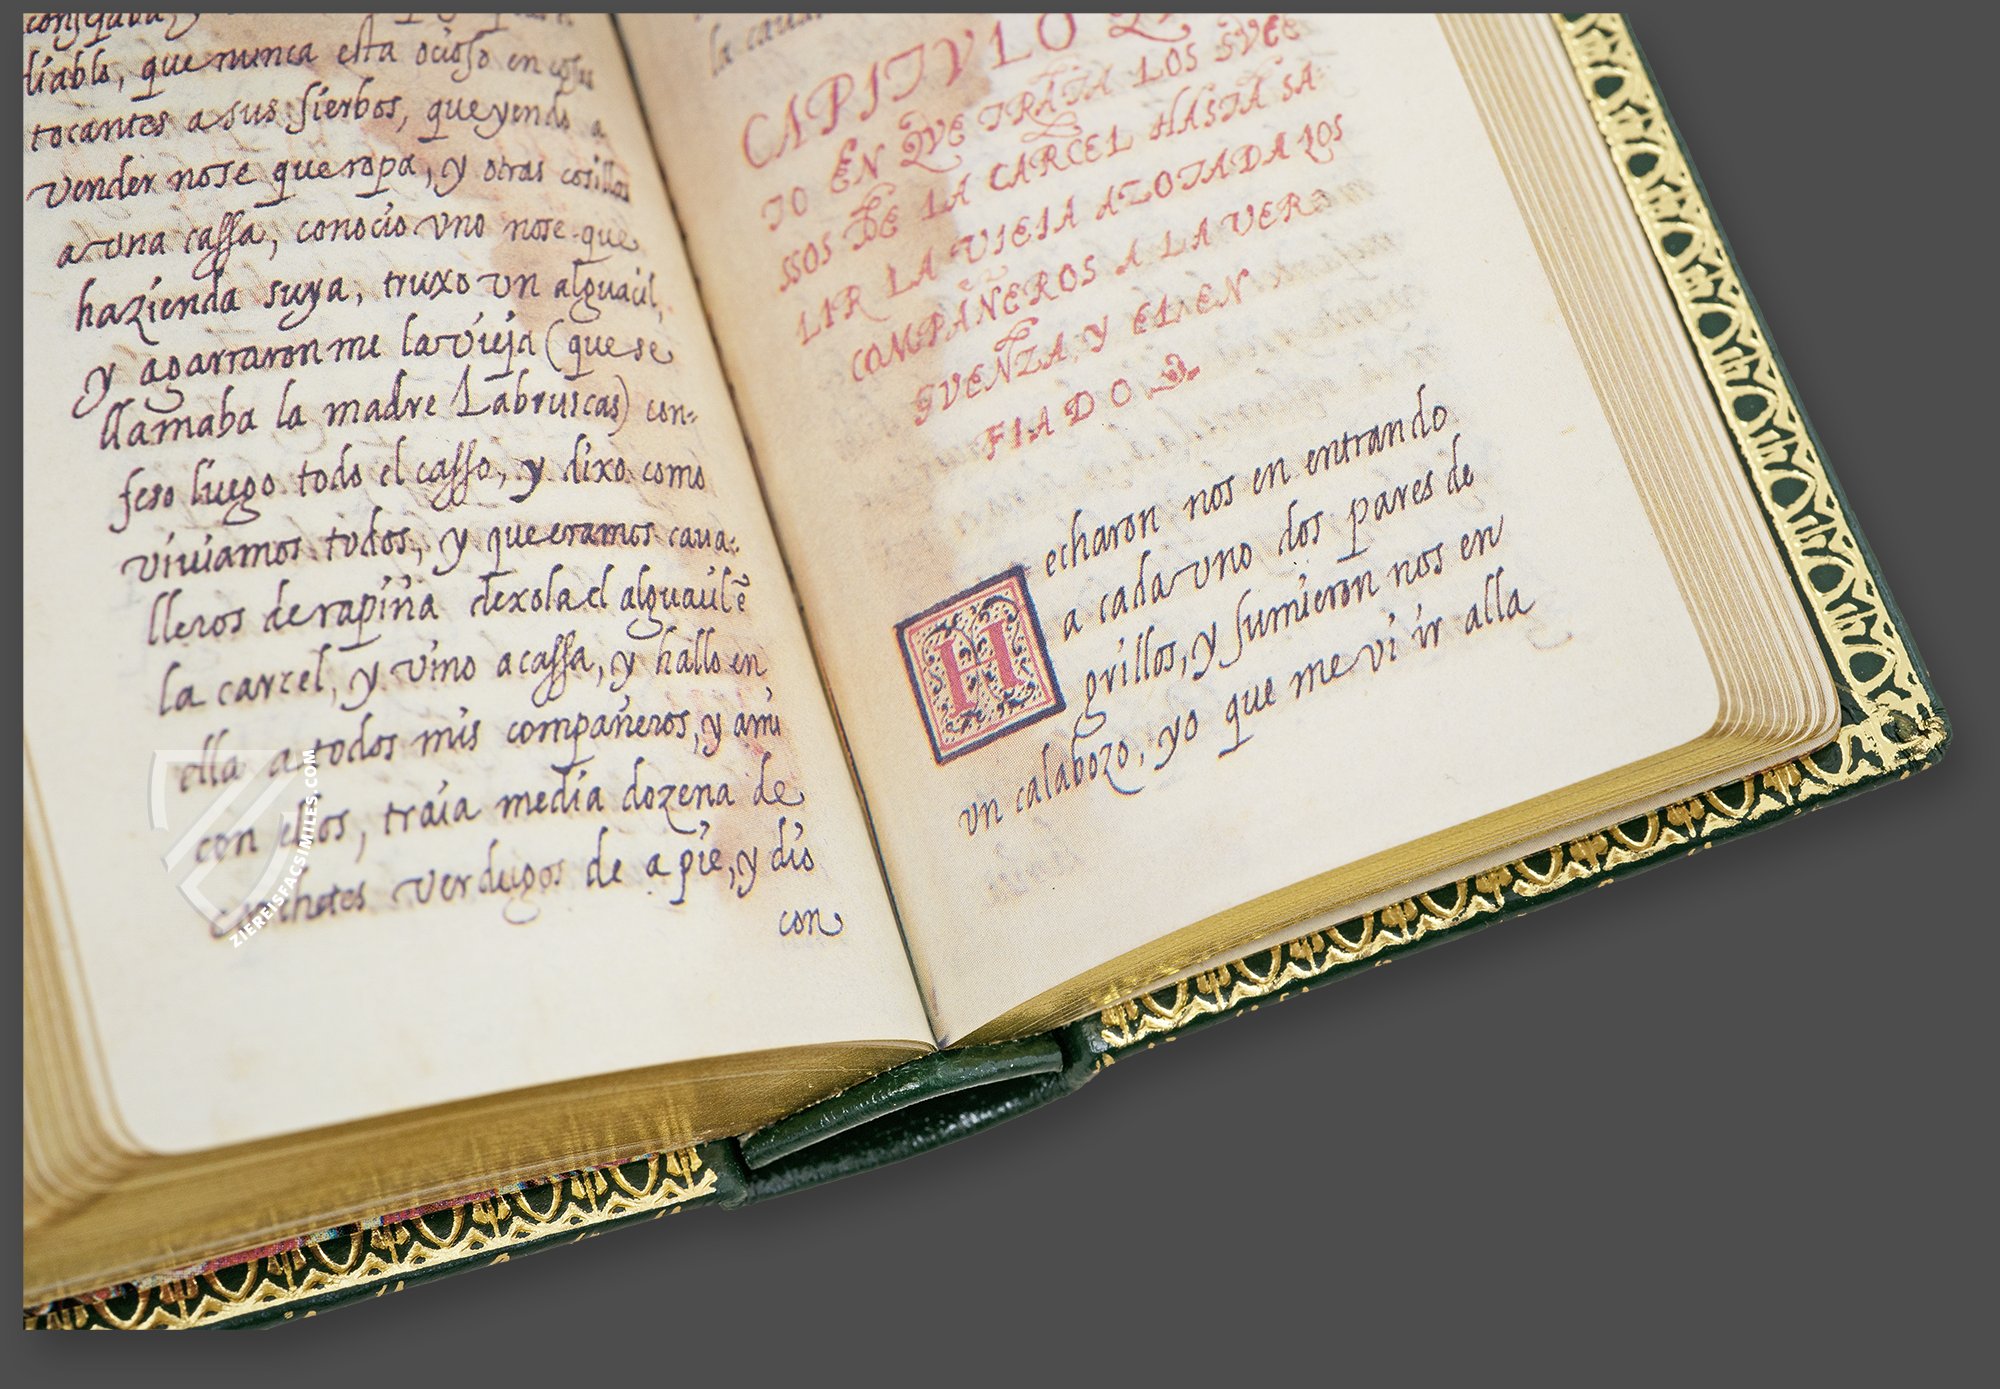 diablo, que nunca esta ocioso en cosas
tocantes a sus sierbos, que yendo a
vender no se que ropa, y otras cosillas
a una cassa, conocio uno no se que
hazienda suya, truxo un alguacil,
y agarraron me la vieja (que se
llamaba la madre Labruscas) con-
feso luego todo el casso, y dixo como
viviamos todos, y que eramos cava-
lleros de rapiña dexola el alguacil ē
la carcel, y vino a cassa, y hallo en
ella a todos mis compañeros, y ami
con ellos, traia media dozena de
corchetes verdugos de a pie, y dio
con
CAPITVLO
TO EN QVE TRATA LOS SVCE
SSOS DE LA CARCEL HASTA SA
LIR LA VIEIA AZOTADA LOS
COMPAÑEROS A LA VER
GVENZA, Y EL EN
FIADO
H echaron nos en entrando
a cada uno dos pares de
grillos, y sumieron nos en
un calabozo, yo que me vi ir alla
ZIEREISFACSIMILES.COM